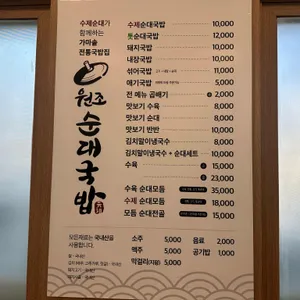 수제순대가
함께하는
가마솥
전통국밥집
원조
순대국밥
수제순대국밥 10,000
톳순대국밥 12,000
돼지국밥 10,000
내장국밥 10,000
섞어국밥 11,000
얘기국밥 5,000
전 메뉴 곱빼기 2,000
맛보기 수육 8,000
맛보기 순대 8,000
맛보기 반반 10,000
김치말이냉국수 8,000
김치말이냉국수 + 순대세트 10,000
수육 15,000
23,000
수육 순대모듬 35,000
수제 순대모듬 18,000
모듬 순대전골
모든재료는 국내산을
사용합니다.
소주 5,000 음료 2,000
맥주 5,000 공기밥 1,000
막걸리(지평) 5,000